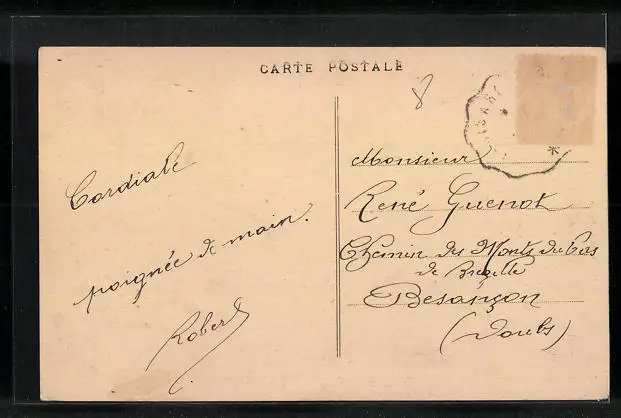 CARTE POSTALE
8
Cordiale
poignée de main.
Robert
Monsieur
René Guenot
Chemin des Monts du bas
de Bregille
Besançon
(Doubs)